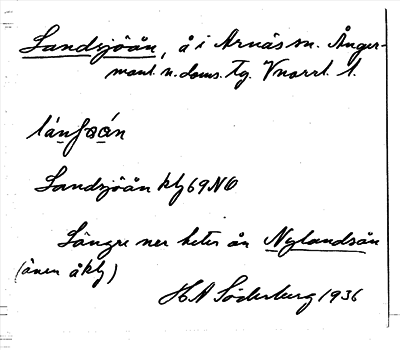 Sandsjöån, å i Arnäs sn. Ånger-
manl. n. doms. tg. Vnorrl. l.
Sandsjöån klg 69 NO
Längre ner heter ån Nylandsån
(även åklg)
H A Söderberg 1936